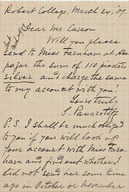 Robert College, March 24, '09.
Dear Mr. Carson
Will you please
send to Miss Farnham at Ada
pazar the sum of 110 piastres
silver and charge the same
to my account with you?
Yours truly
S. Panaretoff
P.S. I shall be much obliged
to you if you will look up
your account with Miss Farn
ham and find out whether I
did not send her some time
ago in October or November